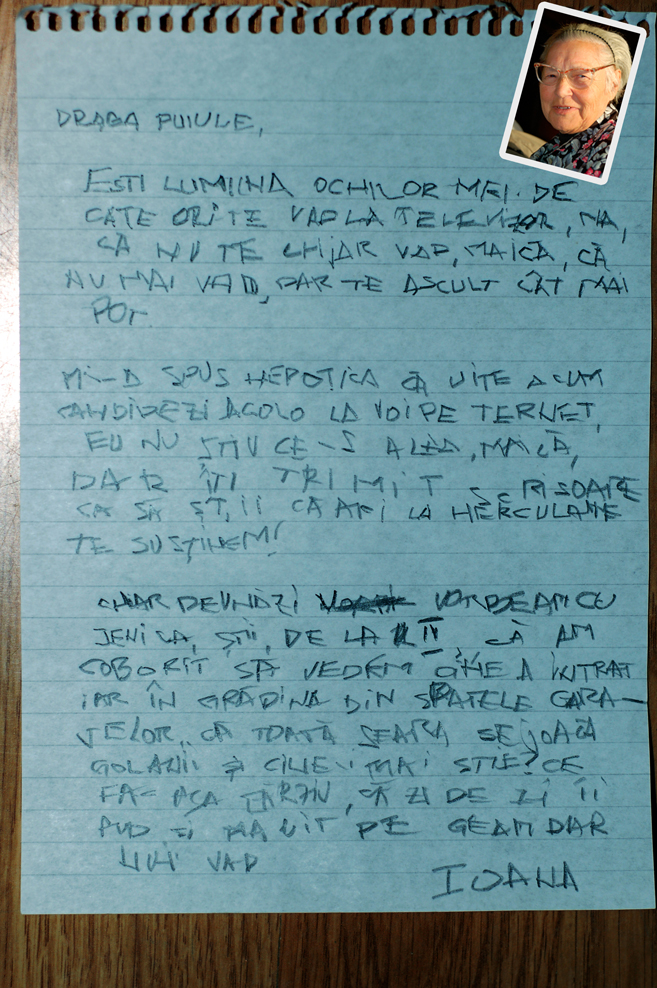 DRAGA PUIULE,
ESTI LUMIINA OCHILOR MEI. DE
CATE ORI TE VAD LA TELEVIZOR, NA,
CĂ NU TE CHIJAR VAD, MAICĂ, CĂ
NU MAI VAD, DAR TE ASCULT CÂT MAI
POT.
MI-A SPUS NEPOTICA CĂ UITE ACUM
CANDIDEZI ACOLO LA VOI PE TERNET,
EU NU ȘTIU CE-S ALEA, MAICĂ,
DAR ÎTI TRIMIT SCRISOARE
CA SĂ ȘTIII CĂ AFI LA HERCULANE
TE SUSȚINEM!
CHIAR DEUNĂZI VORBEAM CU
JENICA, ȘTII, DE LA II, CĂ AM
COBORIT SĂ VEDEM CINE A INTRAT
IAR ÎN GRĂDINA DIN SPATELE GARA-
JELOR, CĂ TOATĂ SEARA SE JOACĂ
GOLANII ȘI CINE-I MAI STIE? CE
FAC AȘA TÂRZIU, CĂ ZI DE ZI ÎI
AUD SI MA UIT PE GEAM DAR
NUI VAD
IOANA